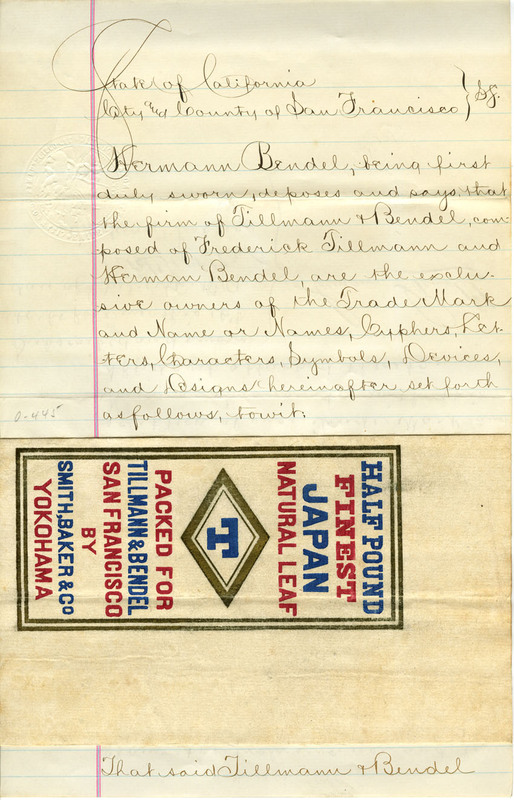 State of California
City & County of San Francisco } SS.
Hermann Bendel, being first
duly sworn, deposes and says that
the firm of Tillmann & Bendel, com-
posed of Frederick Tillmann and
Herman Bendel, are the exclu-
sive owners of the Trade Mark
and Name or Names, Cyphers, Let-
ters, Characters, Symbols, Devices,
and Designs hereinafter set forth
as follows, towit:
0-445
HALF POUND
FINEST
JAPAN
NATURAL LEAF
T
PACKED FOR
TILLMANN & BENDEL
SAN FRANCISCO
BY
SMITH, BAKER & CO
YOKOHAMA
That said Tillmann & Bendel